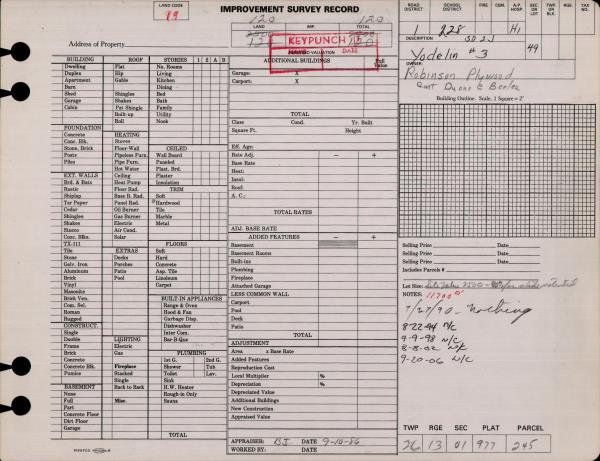 IMPROVEMENT SURVEY RECORD
LAND CODE
19
LAND
IMP.
TOTAL
120
120
KEYPUNCH
DATE
Address of Property
ROAD DISTRICT
SCHOOL DISTRICT
FIRE
CEM.
A.P. HOSP.
SEC OR LOT
TWP. OR BLK.
RGE.
TAX NO.
1
228
H1
49
DESCRIPTION
Yodelin #3
OWNER
Robinson Plywood
Building Outline. Scale, 1 Square = 2'
BUILDING
ROOF
STORIES
1
2
A
B
Dwelling
Flat
No. Rooms
Duplex
Hip
Living
Apartment
Gable
Kitchen
Barn
Dining
Shed
Shingles
Bed
Garage
Shakes
Bath
Cabin
Pat Shingle
Family
Built-up
Utility
Roll
Nook
FOUNDATION
Concrete
HEATING
Conc. Blk.
Stoves
Stone, Brick
Floor-Wall
CEILED
Posts
Pipeless Furn.
Wall Board
Piles
Pipe Furn.
Paneled
Hot Water
Plast, Brd.
EXT. WALLS
Ceiling
Plaster
Brd. & Bats
Heat Pump
Insulation
Rustic
Floor Rad.
TRIM
Shiplap
Base B. Rad.
Soft
Tar Paper
Panel Rad.
Hardwood
Cedar
Oil Burner
Tile
Shingles
Gas Burner
Marble
Shakes
Electric
Metal
Stucco
Air Cond.
Conc. Blks.
Solar
TX-111
FLOORS
Tile
EXTRAS
Soft
Stone
Decks
Hard
Galv. Iron
Porches
Concrete
Aluminum
Patio
Asp. Tile
Brick
Pool
Linoleum
Vinyl
Carpet
Masonite
Brick Ven.
BUILT-IN APPLIANCES
Com. Sel.
Range & Oven
Roman
Hood & Fan
Rugged
Garbage Disp.
CONSTRUCT.
Dishwasher
Single
Inter Com.
Double
LIGHTING
Bar-B-Que
Frame
Electric
Brick
Gas
PLUMBING
Concrete
1st G.
2nd G.
Concrete Blk.
Fireplace
Shower
Tub
Pumice
Stacked
Toilet
Lav.
Single
Sink
BASEMENT
Back to Back
H.W. Heater
None
Rough-in Only
Full
Misc.
Sauna
Part
Concrete Floor
Dirt Floor
Garage
TOTAL
ADDITIONAL BUILDINGS
Full Value
Garage:
X
Carport:
X
TOTAL
Class
Cond.
Yr. Built
Square Ft.
Height
Eff. Age:
Rate Adj.
−
+
Base Rate
Heat:
Insul:
Roof:
A. C.:
TOTAL RATES
ADJ. BASE RATE
ADDED FEATURES
−
+
Basement
Basement Rooms
Built-ins
Plumbing
Fireplace
Attached Garage
LESS COMMON WALL
Carport
Pool
Deck
Patio
TOTAL
ADJUSTMENT
Area
x Base Rate
Added Features
Reproduction Cost
Local Multiplier
%
Depreciation
%
Depreciated Value
Additional Buildings
New Construction
Appraised Value
APPRAISER:
BJ
DATE
9-10-86
WORKED BY:
DATE
Selling Price
Date
Selling Price
Date
Selling Price
Date
Includes Parcels #
Lot Size:
NOTES:
11700
7/27/90 - Nothing
8-22-94 N/C
9-9-98 N/C
8-8-02 N/C
9-20-06 N/C
TWP
RGE
SEC
PLAT
PARCEL
26
13
01
977
245